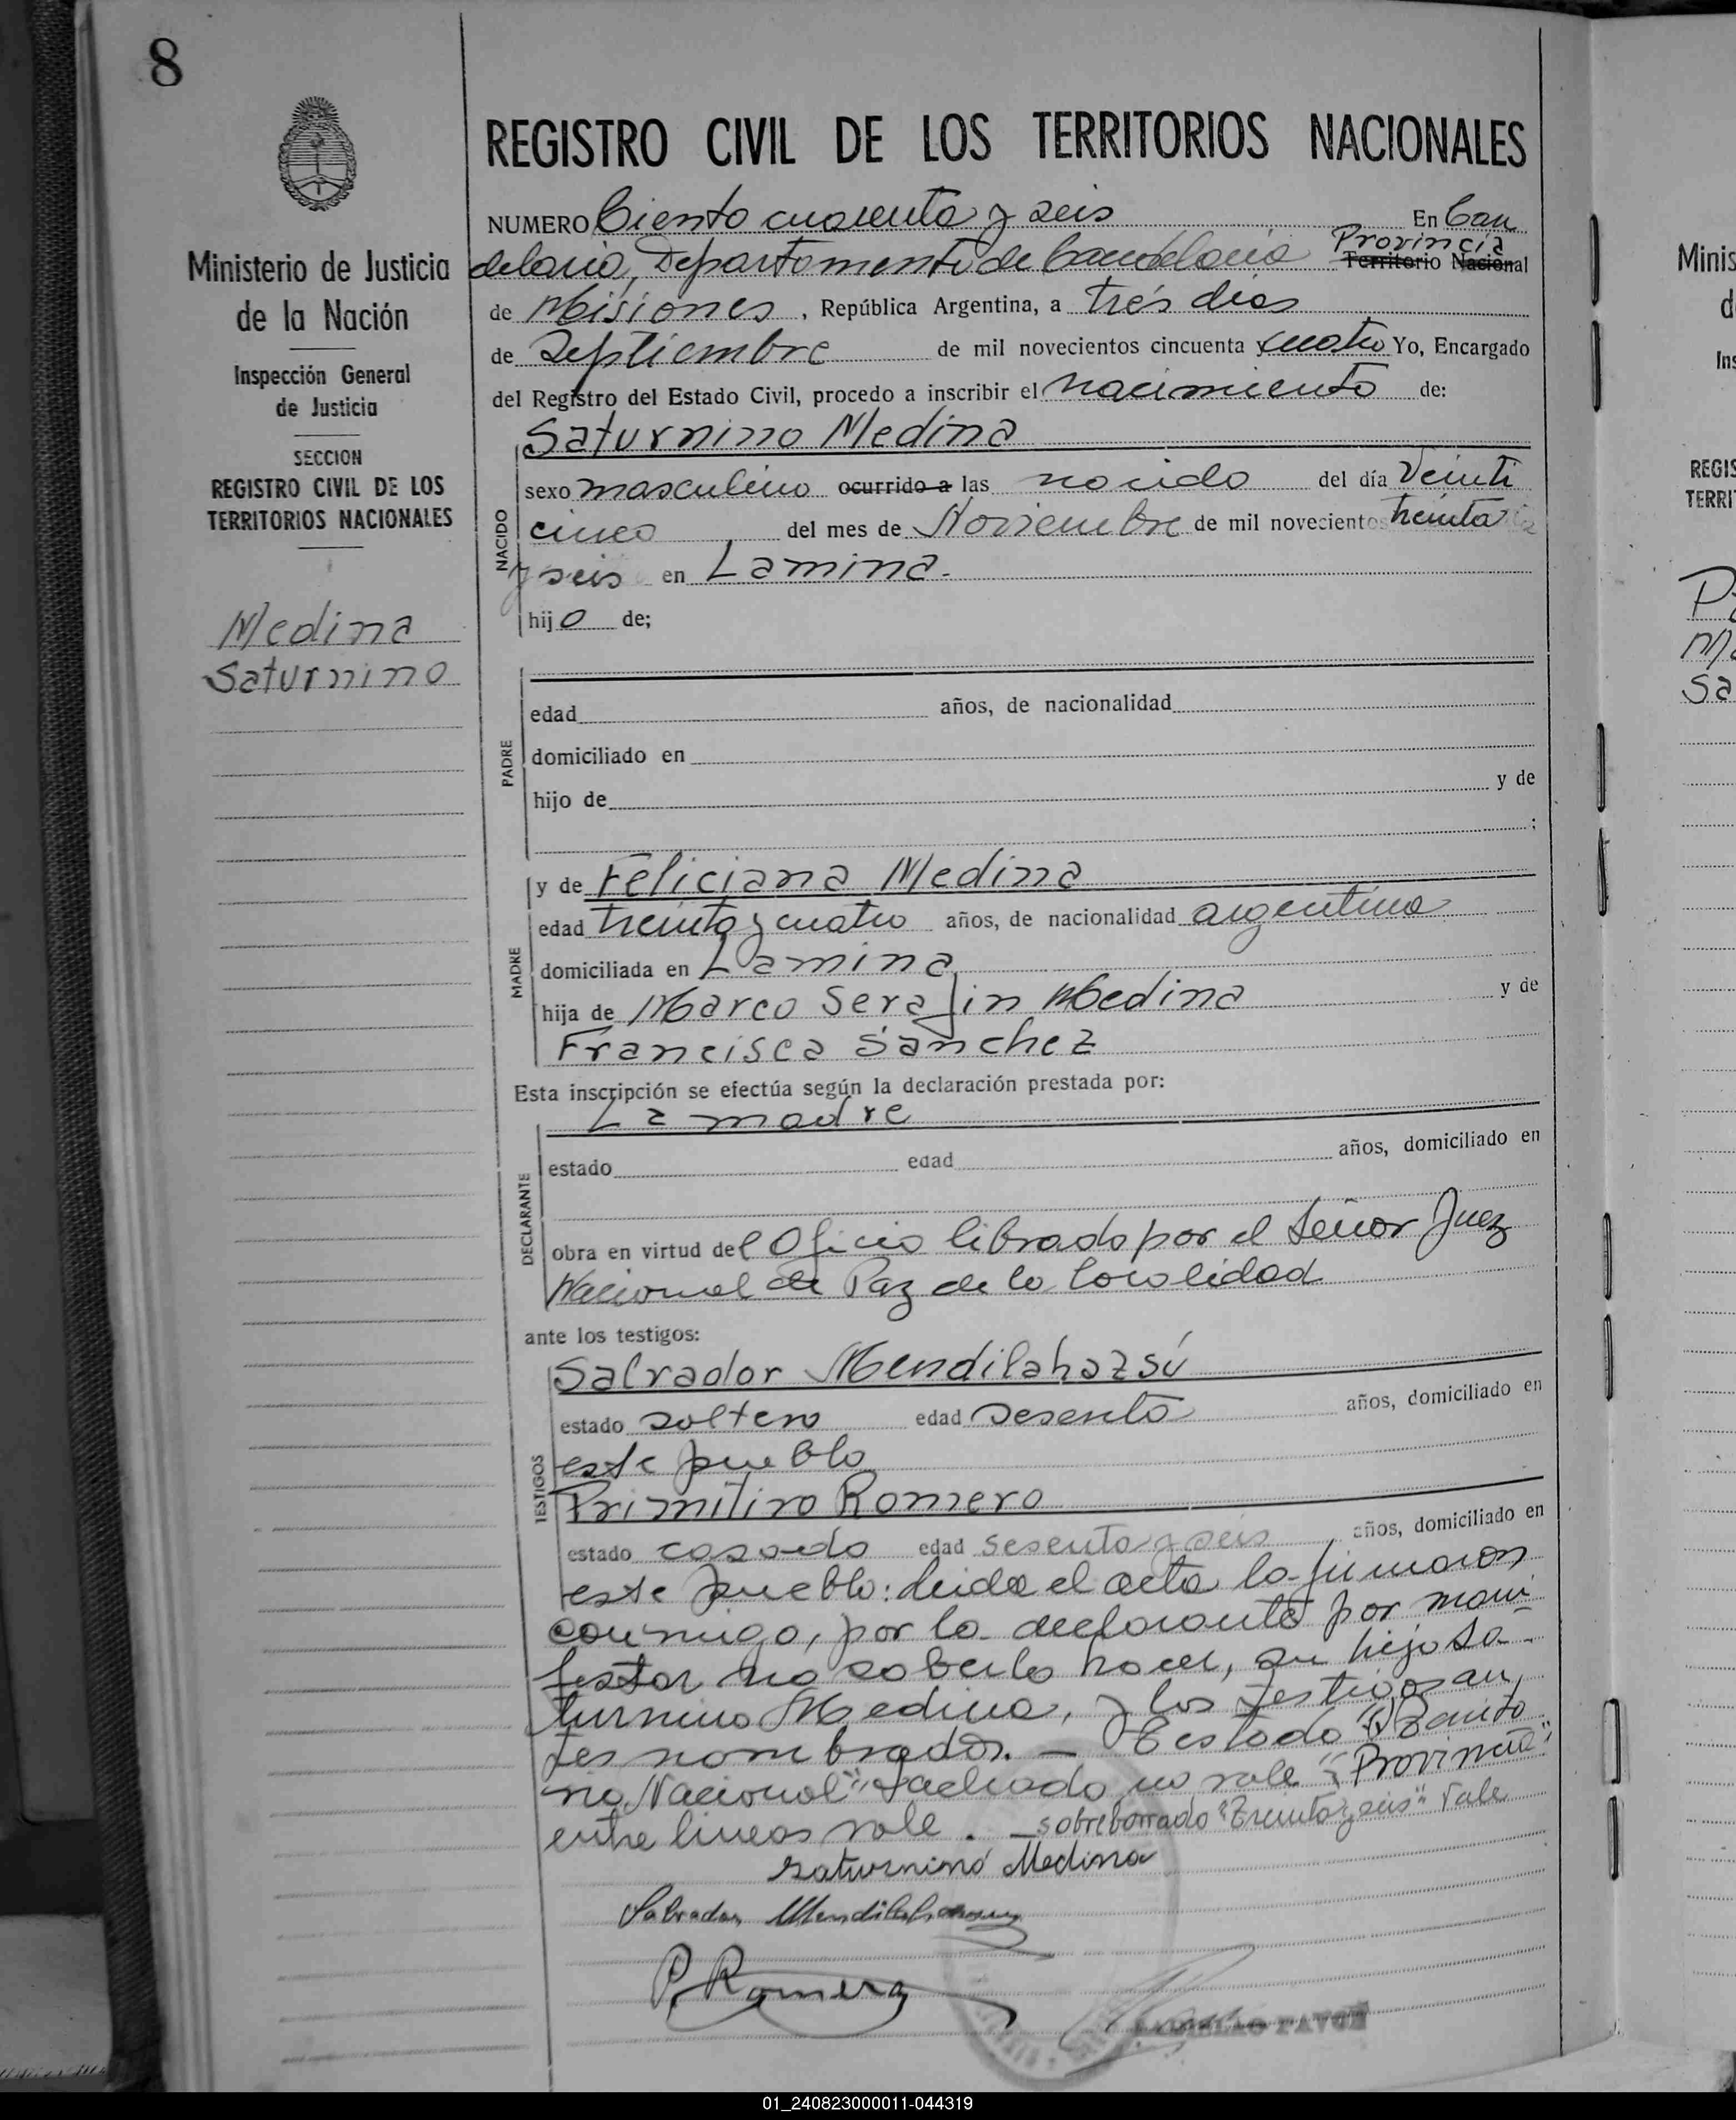 8
REGISTRO CIVIL DE LOS TERRITORIOS NACIONALES
Ministerio de Justicia
de la Nación
Inspección General
de Justicia
SECCION
REGISTRO CIVIL DE LOS
TERRITORIOS NACIONALES
Medina
Saturnino
NUMERO Ciento cuarenta y seis En Can
delaria, Departamento de Candelaria Provincia Territorio Nacional
de Misiones, República Argentina, a tres días
de Septiembre de mil novecientos cincuenta y cuatro Yo, Encargado
del Registro del Estado Civil, procedo a inscribir el nacimiento de:
Saturnino Medina
NACIDO
sexo masculino ocurrido a las nacido del día Veinti
cinco del mes de Noviembre de mil novecientos treinta
y seis en Lamina.
hijo de;
PADRE
edad años, de nacionalidad
domiciliado en
hijo de y de
;
MADRE
y de Feliciana Medina
edad treinta y cuatro años, de nacionalidad argentina
domiciliada en Lamina
hija de Marco Serafin Medina y de
Francisca Sánchez
Esta inscripción se efectúa según la declaración prestada por:
La madre
DECLARANTE
estado edad años, domiciliado en
obra en virtud del Oficio librado por el Señor Juez
Nacional de Paz de la localidad
ante los testigos:
TESTIGOS
Salvador Mendilahazsú
estado soltero edad sesenta años, domiciliado en
este pueblo
Primitivo Romero
estado casado edad sesenta y seis años, domiciliado en
este pueblo: leida el acta la firmaron
conmigo, por la declarante por mani
festar no saberlo hacer, su hijo Sa-
turnino Medina, y los testigos an
tes nombrados. — Testado "Territo
rio Nacional" tachado no vale "Provincia"
entre lineas vale. — sobreborrado "Treinta y seis" Vale
Saturnino Medina
Salvador
P. Romero
PAVON
Minis
d
Ins
REGIS
TERRI
Sa
01_240823000011-044319